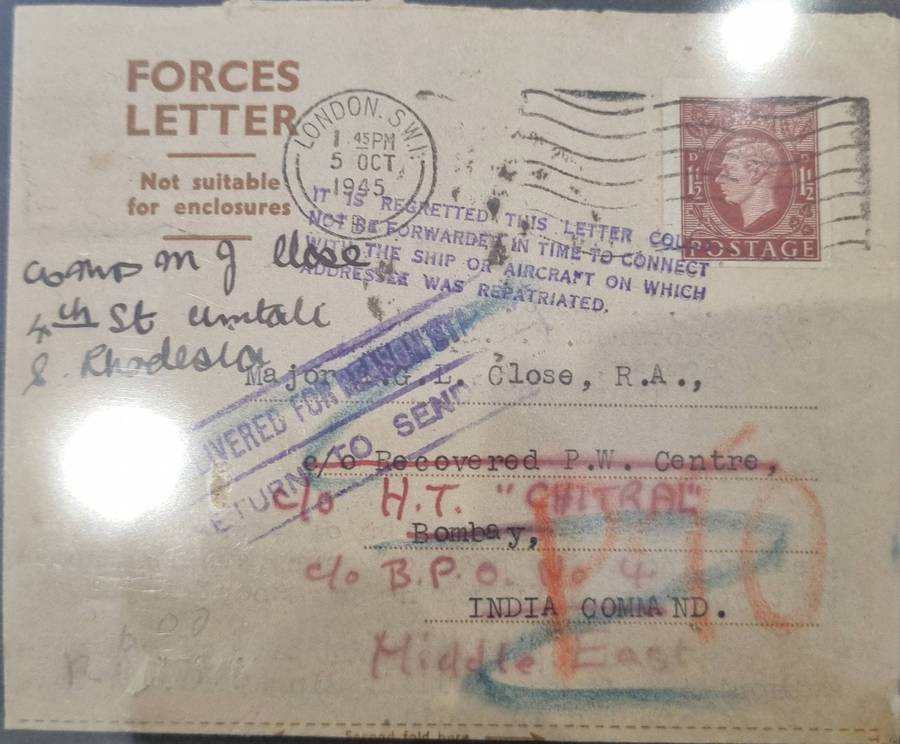 FORCES
LETTER
Not suitable
for enclosures
LONDON. S.W.1.
1 45PM
5 OCT
1945
1½ 1½
POSTAGE
IT IS REGRETTED THIS LETTER COULD
NOT BE FORWARDED IN TIME TO CONNECT
WITH THE SHIP OR AIRCRAFT ON WHICH
ADDRESSEE WAS REPATRIATED.
M J Close
4th St Umtali
S. Rhodesia
FOR REASON
RETURN TO SEND
Major G.L. Close, R.A.,
c/o Recovered P.W. Centre,
c/o H.T. "CHITRAL"
Bombay,
c/o B.P.O. No 4
INDIA COMMAND.
Middle East
PTO
Second fold here